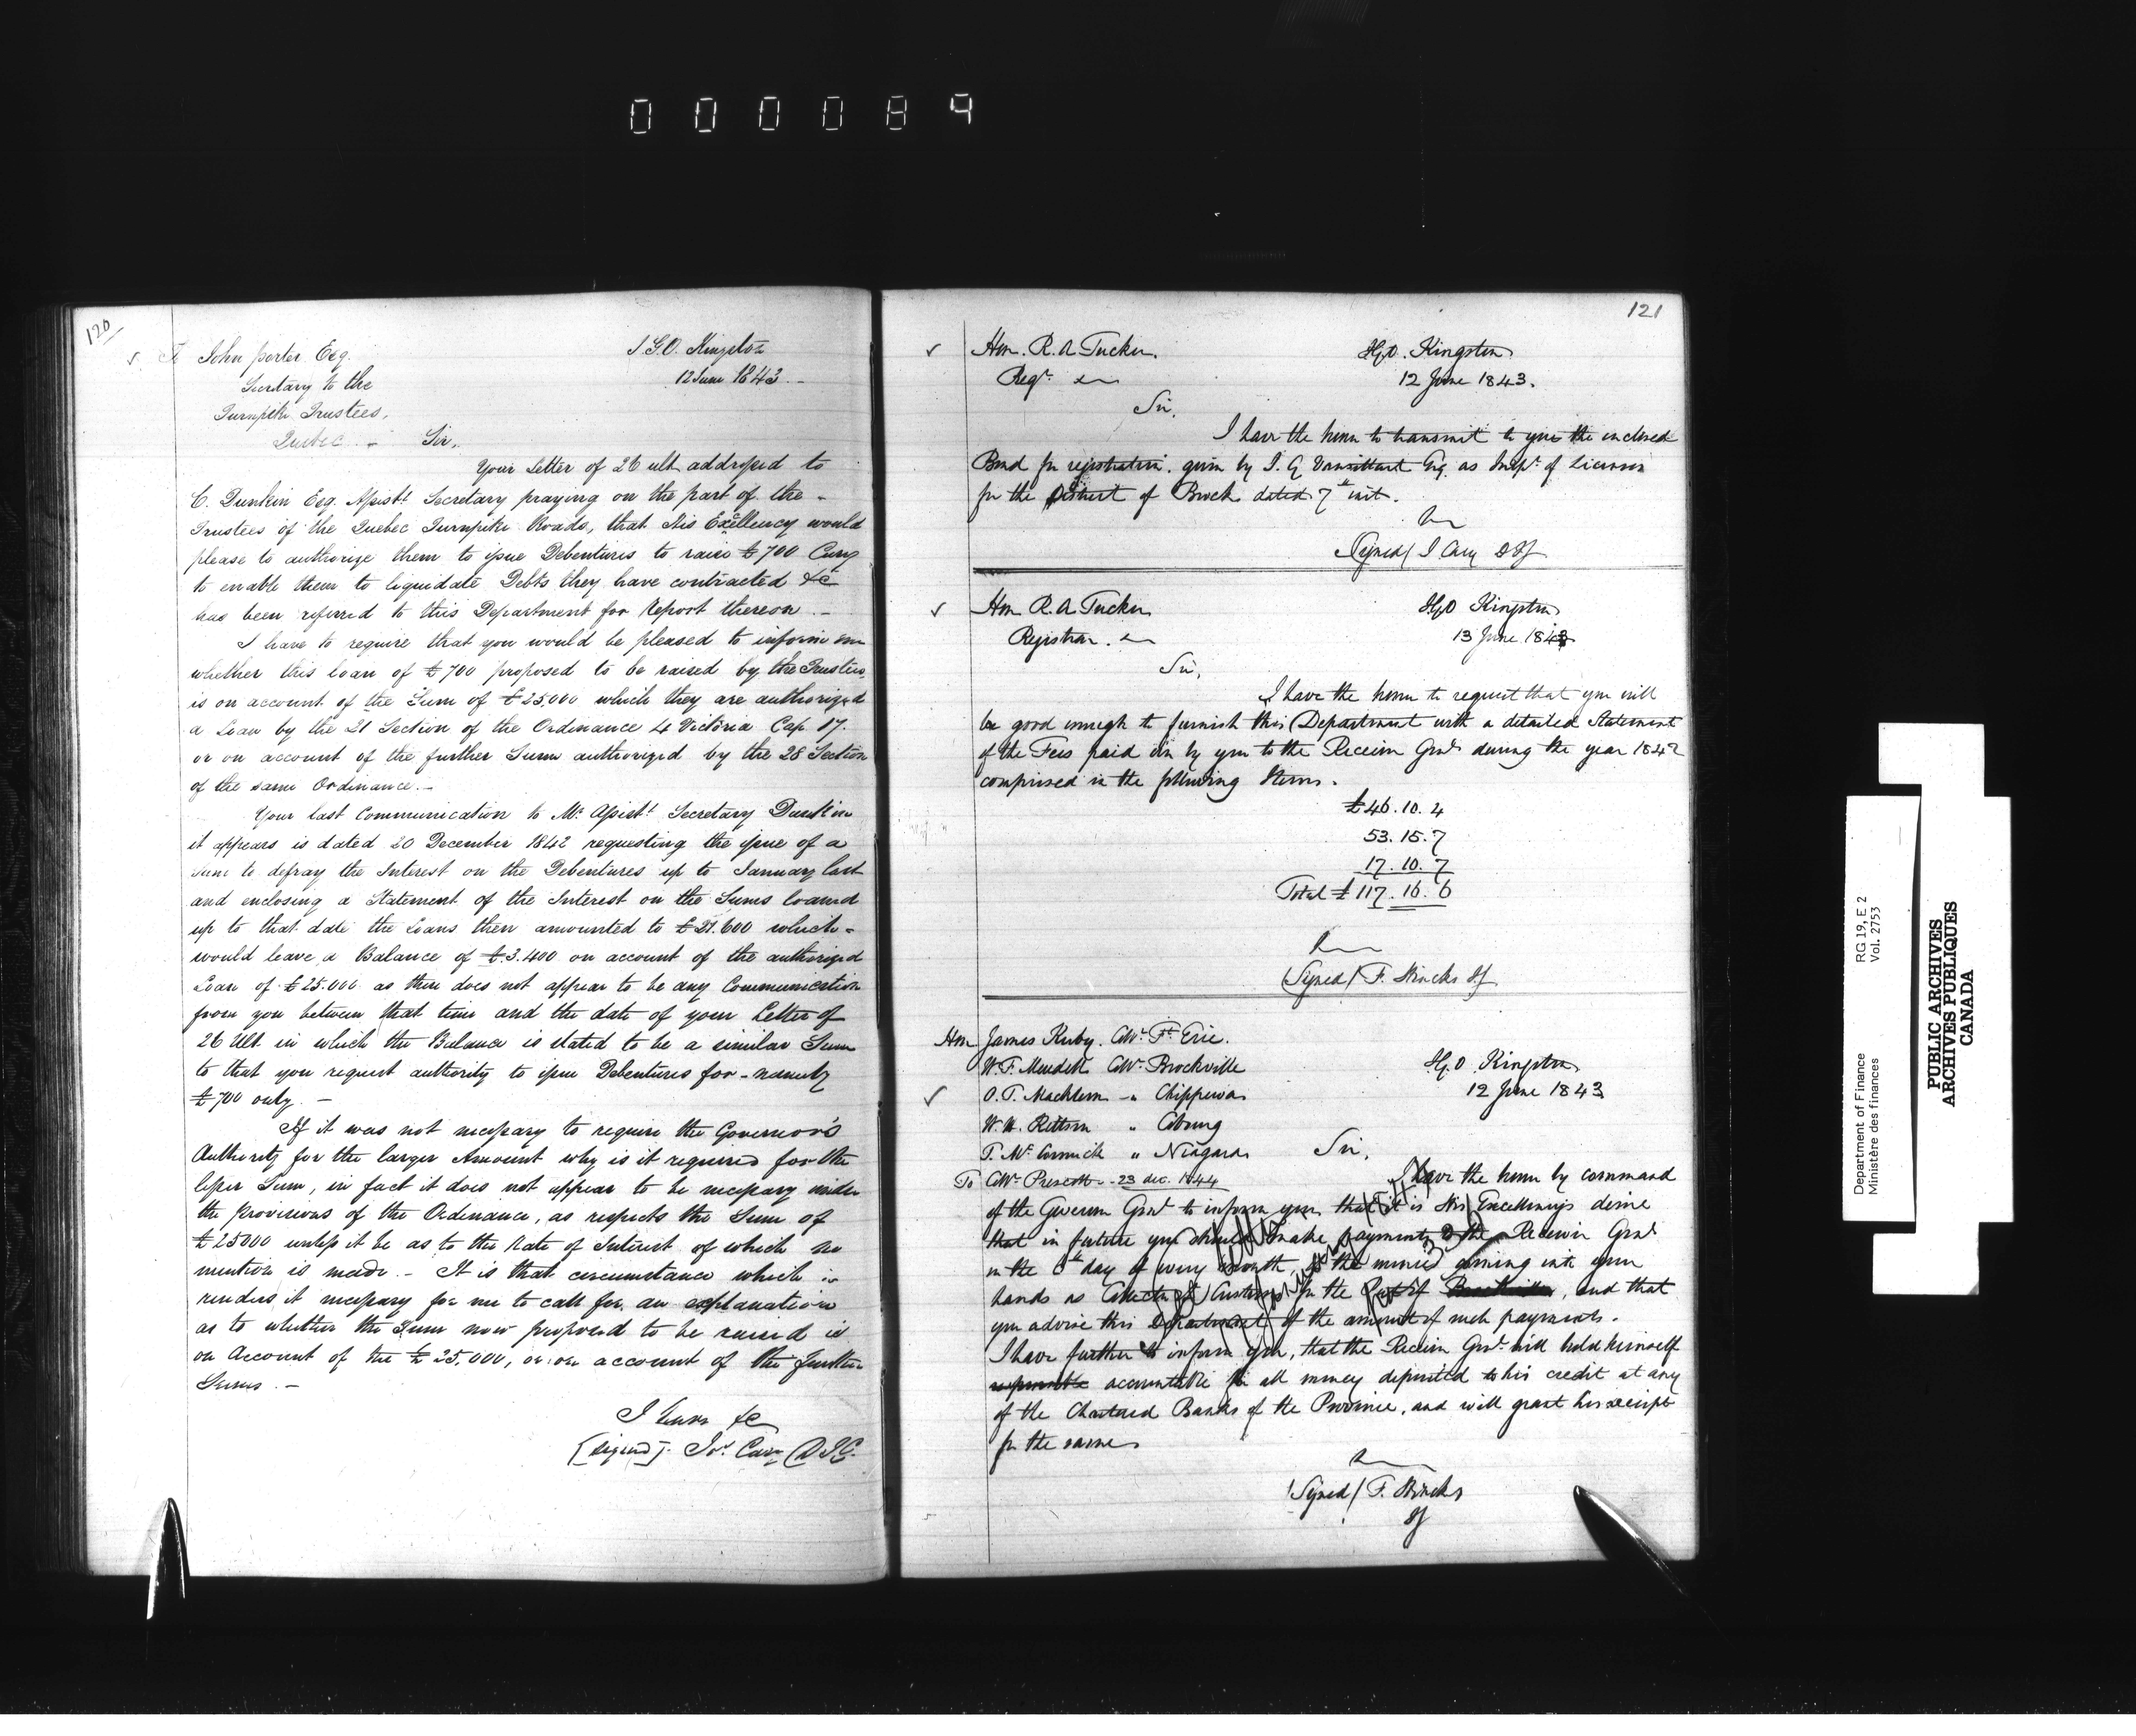 000089
120
To John Porter Esq.
Secretary to the
Turnpike Trustees,
Quebec. - Sir,
I.G.O. Kingston
12 June 1843. -
Your Letter of 26 ult. addressed to
C. Dunkin Esq. Assist.t Secretary praying on the part of the -
Trustees of the Quebec Turnpike Roads, that His Excellency would
please to authorize them to issue Debentures to raise £700 Curry
to enable them to liquidate Debts they have contracted &c
has been referred to this Department for Report thereon. -
I have to require that you would be pleased to inform me
whether this loan of £700 proposed to be raised by the Trustees
is on account of the Sum of £25,000 which they are authorized
a Loan by the 21 Section of the Ordinance 4 Victoria Cap 17.
or on account of the further Sum authorized by the 28 Section
of the same Ordinance. -
Your last Communication to Mr. Assist.t Secretary Dunkin
it appears is dated 20 December 1842 requesting the issue of a
Sum to defray the Interest on the Debentures up to January last
and enclosing a Statement of the Interest on the Sums loaned
up to that date the Loans then amounted to £21.600 which -
would leave a Balance of £3.400 on account of the authorized
Loan of £25.000 as there does not appear to be any Communication
from you between that time and the date of your Letter of
26 Ult. in which the Balance is stated to be a similar Sum
to that you request authority to issue Debentures for - namely
£700 only. -
If it was not necessary to require the Governor's
Authority for the larger Amount why is it required for the
lesser Sum, in fact it does not appear to be necessary under
the provisions of the Ordinance, as respects the Sum of
£25000 unless it be as to the Rate of Interest of which no
mention is made. - It is that circumstance which is
renders it necessary for me to call for an explanation
as to whether the Sum now proposed to be raised is
on Account of the £25.000, or on account of the further
Sums. -
I have &c
[signed]. Jos. Cary D I G.
121
Hon. R. A Tucker.
Regr.
IGO. Kingston
12 June 1843.
Sir,
I have the honor to transmit to you the enclosed
Bond for registration. given by J. G Vansittart Esq. as Inspr. of Licenses
for the District of Brock dated 7th inst.
(Signed) J Cary DIG
Hon R. A Tucker
Registrar.
IGO Kingston
13 June 1843
Sir,
I have the honor to request that you will
be good enough to furnish this Department with a detailed Statement
of the Fees paid in by you to the Receiver Genl during the year 1842
comprised in the following Items.
£46.10.4
53.15.7
17.10.7
Total £117.16.6
(Signed) F. Hincks IG
Hon James Kerby. Collr. Ft. Erie.
W. F. Meredith Collr. Brockville
O. T. Macklem " Chippewa
W. H. Kittson " Cobourg
T. McCormick " Niagara
To Collr. Prescott - 23 dec. 1844
IGO Kingston
12 June 1843
Sir,
I have the honor by command
of the Governor Genl to inform you that it is His Excellency's desire
that in future you should make payments to the Receiver Genl
on the 8th day of every Month, of the monies coming into your
hands as Collector of Customs for the Port of Brockville, and that
you advise this Department of the amount of such payments.
I have further to inform you, that the Receiver Genl. will hold himself
responsible accountable for all money deposited to his credit at any
of the Chartered Banks of the Province, and will grant his receipt
for the same
(Signed) F. Hincks
IG
Department of Finance
Ministère des finances
RG 19, E 2
Vol. 2753
PUBLIC ARCHIVES
ARCHIVES PUBLIQUES
CANADA